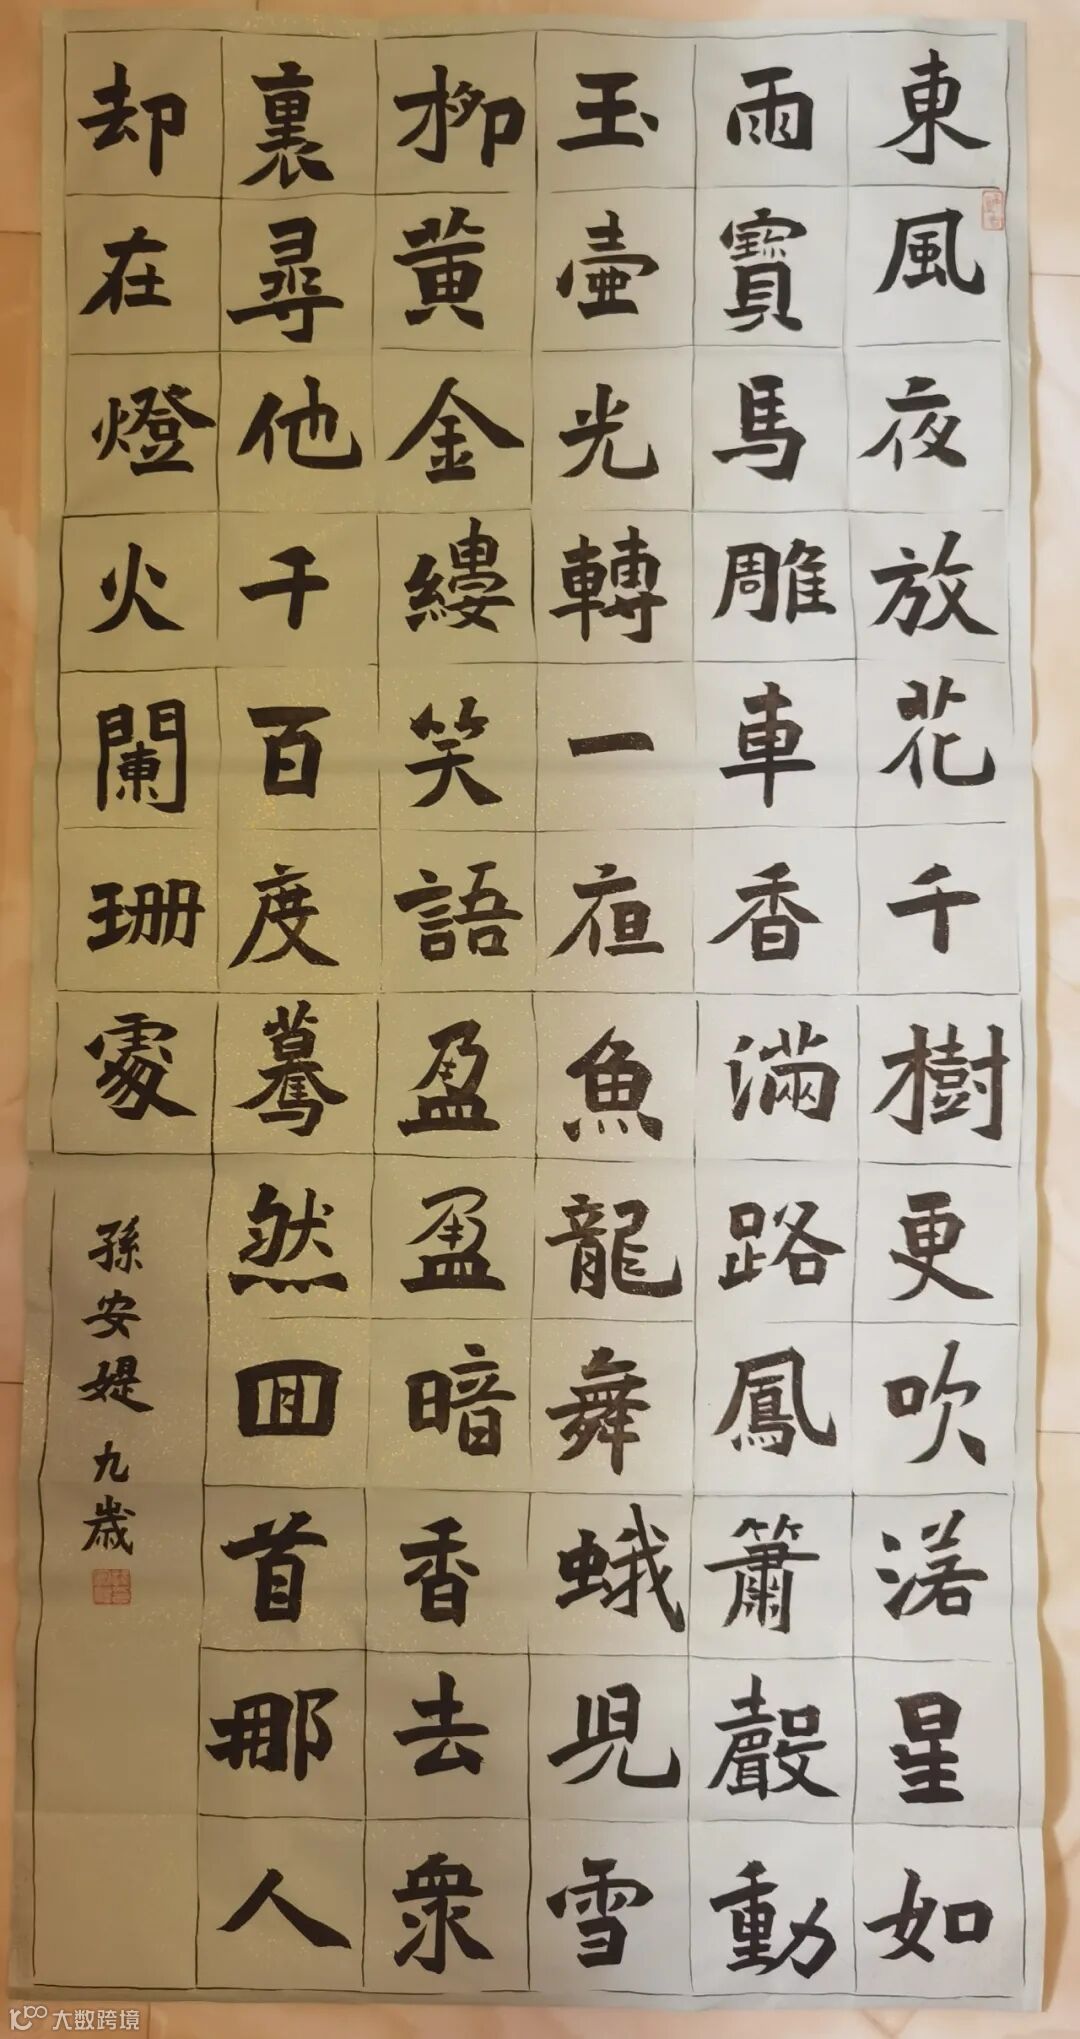 東風夜放花千樹更吹落星如
雨寶馬雕車香滿路鳳簫聲動
玉壺光轉一夜魚龍舞蛾兒雪
柳黄金縷笑語盈盈暗香去衆
裏尋他千百度驀然回首那人
却在燈火闌珊處
孫安媞九歲
大数跨境